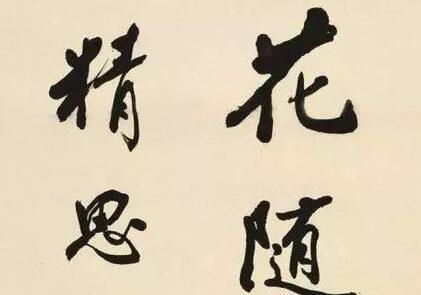 花随
精思